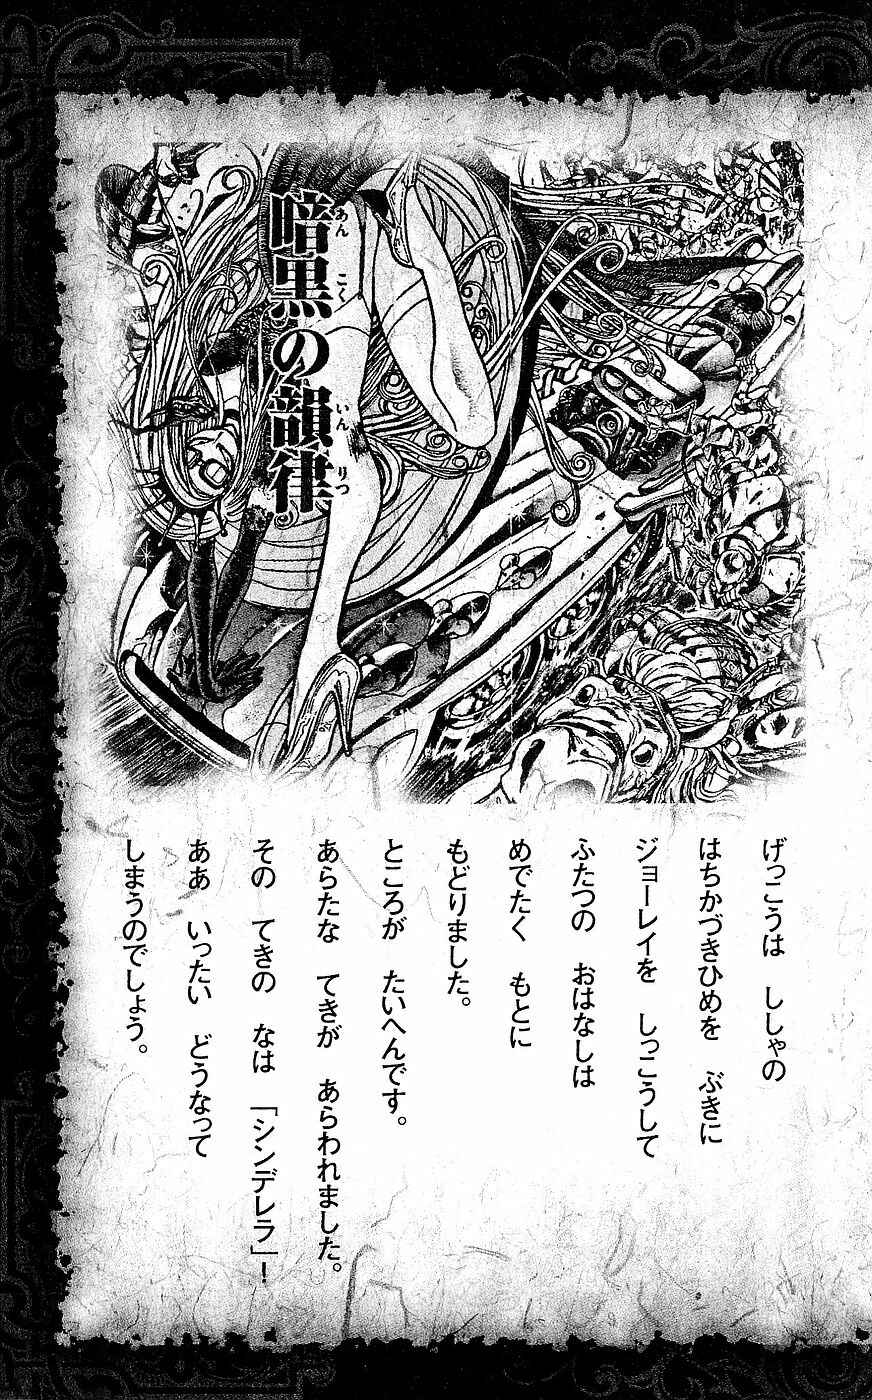 暗黒の韻律
あん こく いん りつ
げっこうは ししゃの
はちかづきひめを ぶきに
ジョーレイを しっこうして
ふたつの おはなしは
めでたく もとに
もどりました。
ところが たいへんです。
あらたな てきが あらわれました。
その てきの なは 「シンデレラ」！
ああ いったい どうなって
しまうのでしょう。